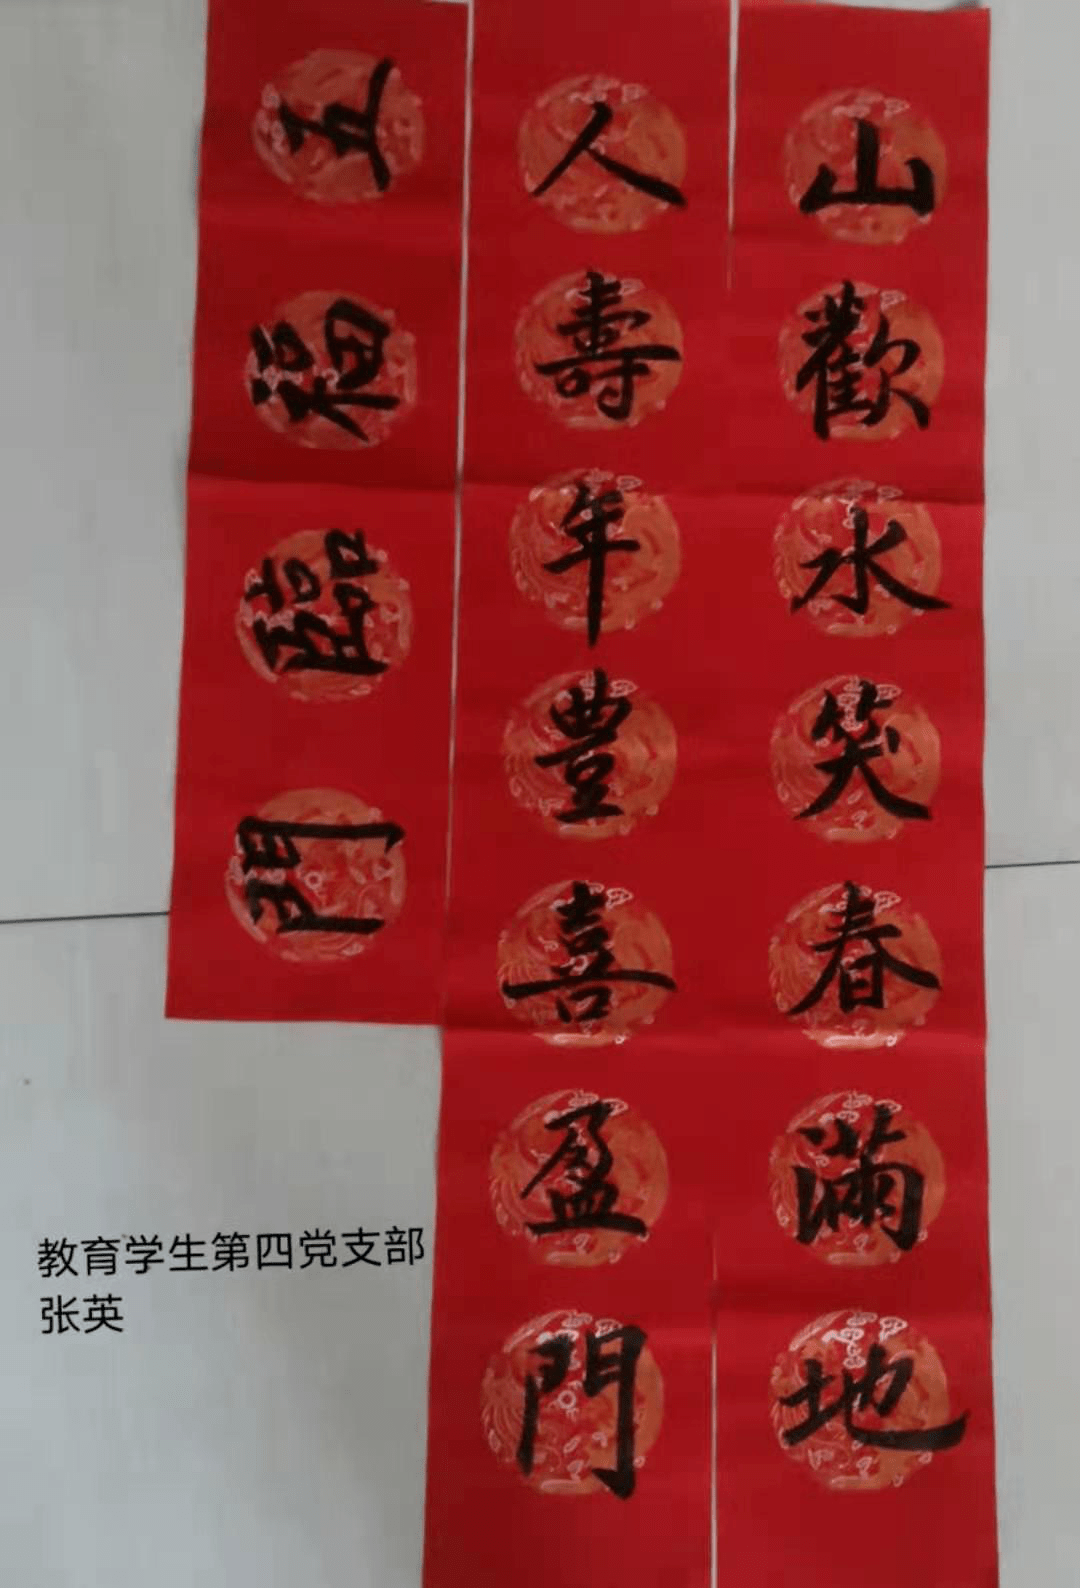 山歡水笑春滿地
人壽年豊喜盈門
五福臨門
教育学生第四党支部
张英